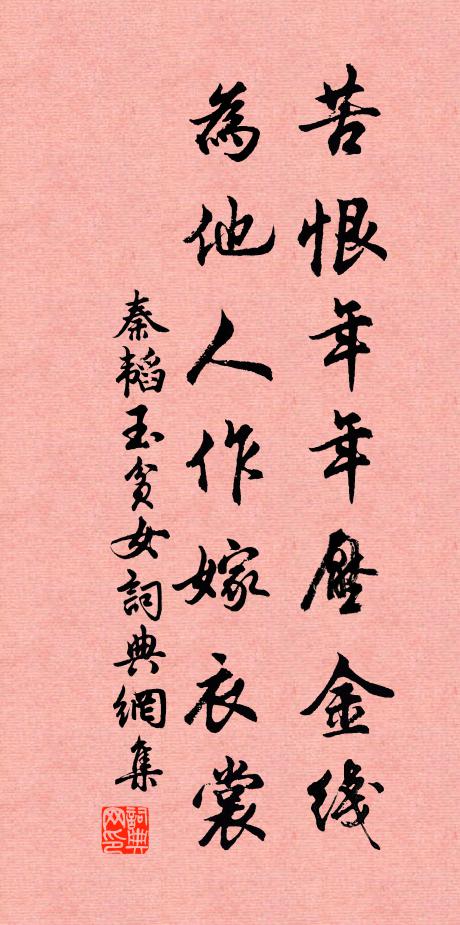 苦恨年年壓金线
為他人作嫁衣裳
秦韬玉貧女詞典網集
詞典网印